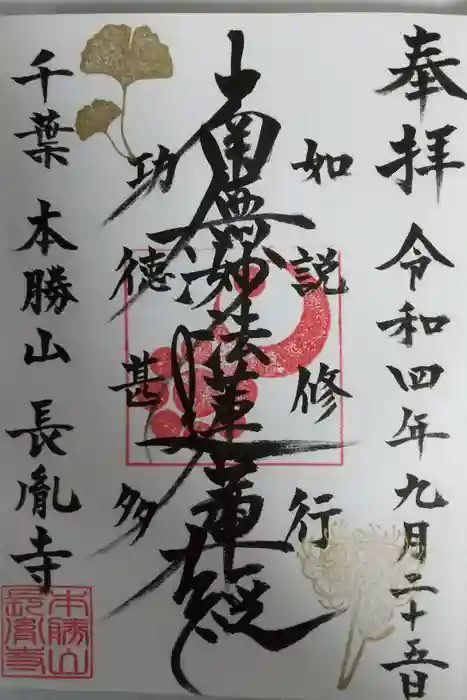 奉拝 令和四年九月二十五日
如説修行
南無妙法蓮華経
功徳甚多
千葉 本勝山 長胤寺
本勝山
長胤寺